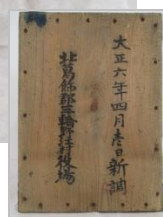 大正六年四月壱日新調
北葛飾郡三輪野江村役場